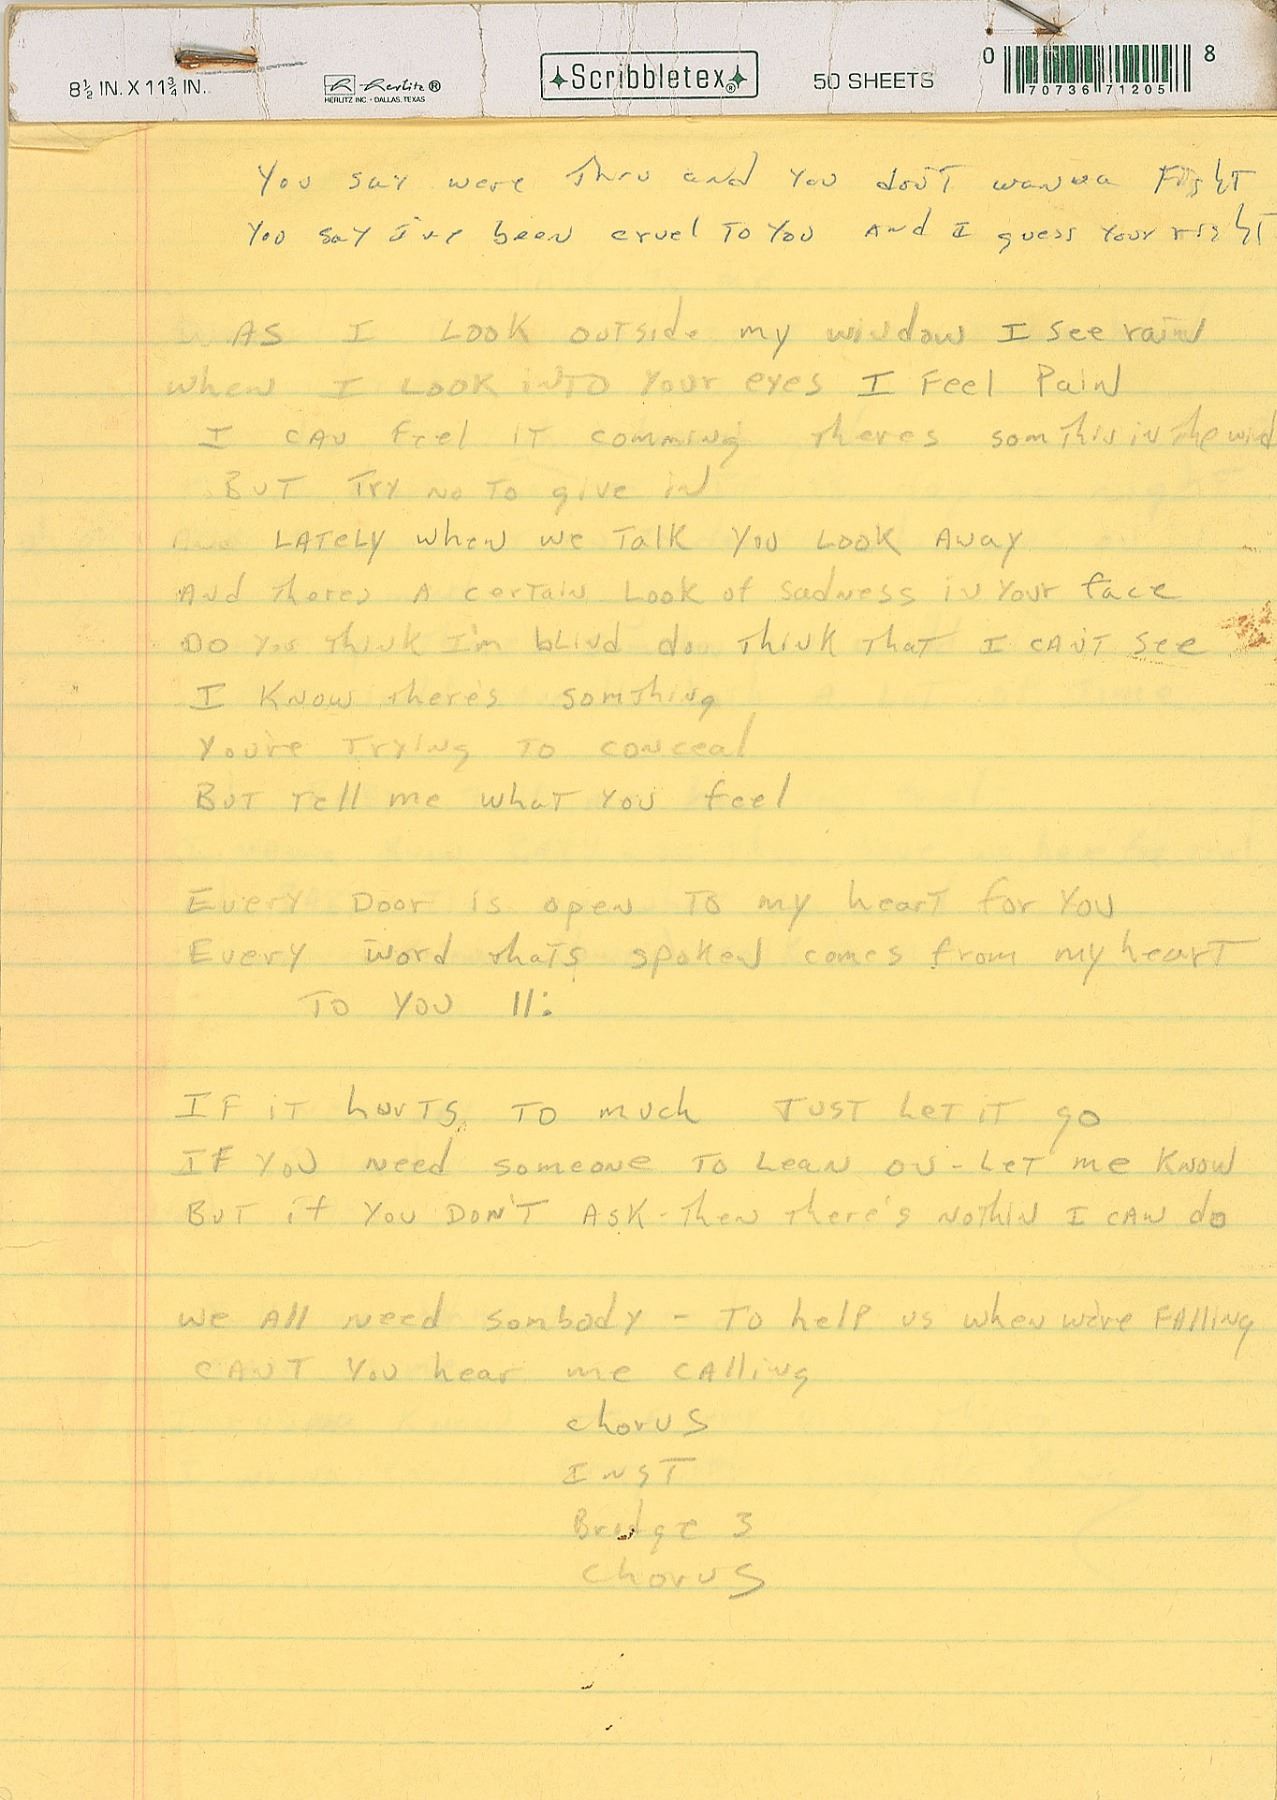 8½ IN. X 11¾ IN.
Herlitz®
HERLITZ INC - DALLAS, TEXAS
Scribbletex®
50 SHEETS
0 70736 71205 8
You say were thru and you don't wanna Fight
You say I've been cruel To You And I guess Your right
AS I LOOK OUTSide my window I see rain
when I LOOK iNTO Your eyes I Feel Pain
I CAN Feel IT comming theres somThin in The wind
BUT Try no To give in
And LATELY when we Talk You LOOK AWAY
And theres A certain Look of sadness in Your face
DO You Think I'm blind do Think that I CAN'T see
I KNOW there's somThing
You're Trying TO conceal
BUT Tell me whaT You feel
Every Door is open TO my hearT for You
Every word thaTs spoken comes from my hearT
TO YOU ||:
IF iT hurTs TO much JUST LeT iT go
IF YOU Need someone To Lean on - LeT me KNOW
BUT if YOU DON'T ASK - Then there's NoThin I CAN do
we All Need sombody - To help us when we're FAlling
CAN'T You hear me CAlling
chorus
INST
Bridge 3
Chorus